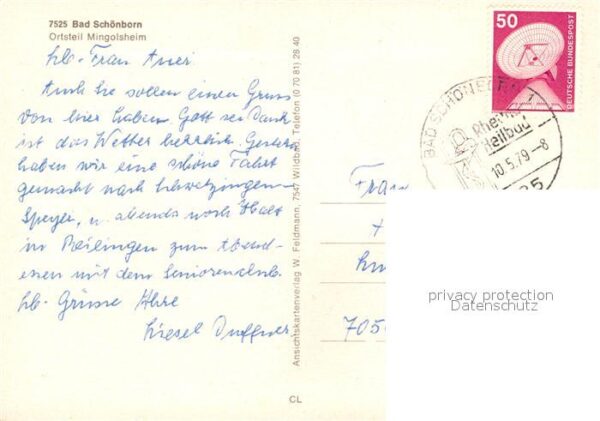 7525 Bad Schönborn
Ortsteil Mingolsheim
Lb. Frau Auer.
Auch Sie sollen einen Gruss
von hier haben. Gott sei Dank
ist das Wetter herrlich. Gestern
haben wir eine schöne Fahrt
gemacht nach Schwetzingen -
Speyer, u. abends noch Halt
in Reilingen zum Abend-
essen mit dem Seniorenclub.
Lb. Grüsse Ihre
Liesel Duffner
Ansichtskartenverlag W. Feldmann, 7547 Wildbad, Telefon (0 70 81) 28 40
CL
50
DEUTSCHE BUNDESPOST
BAD SCHÖNBORN
Heilbad
10.5.79-8
Frau
705
privacy protection
Datenschutz